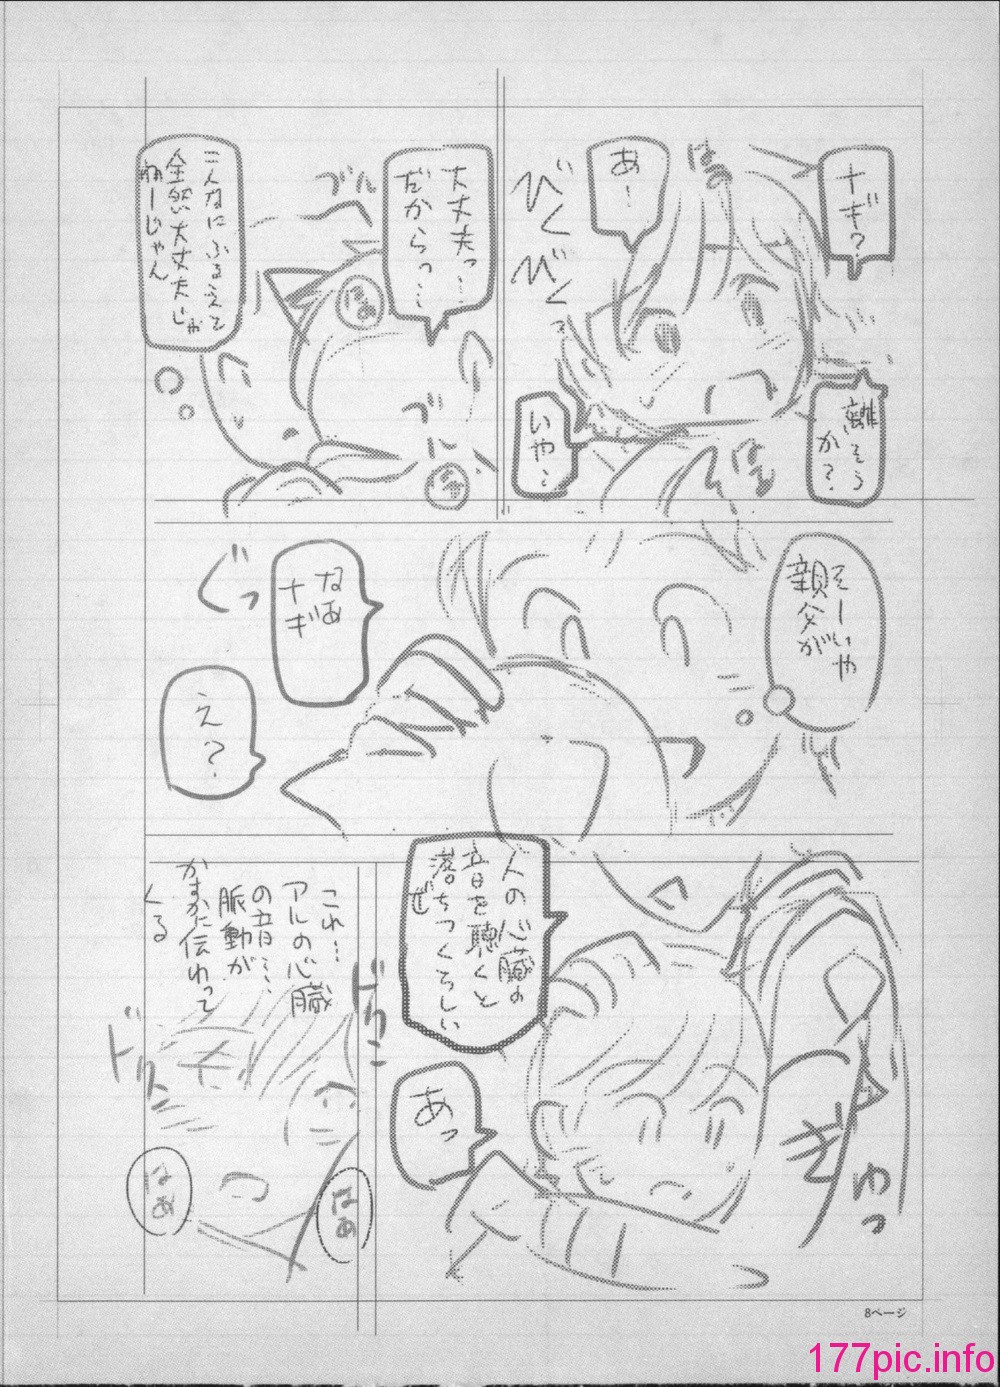 ナギ?
離そう
か?
あ…
いや…
びく
びく
はぁ
はぁ
大丈夫っ…
だからっ…
ブル
はぁ
ブル
こんなにふるえて
全然大丈夫じゃ
ねーじゃん
そーいや
親父が
なあ
ナギ
ぐっ
え?
人の心臓の
音を聴くと
落ちつくらしい
ぜ
あっ
ぎゅっ
ドクン
これ…
アルの心臓
の音…
脈動が
かすかに伝わって
くる
ドクン
はぁ
はぁ
8ページ
177pic.info